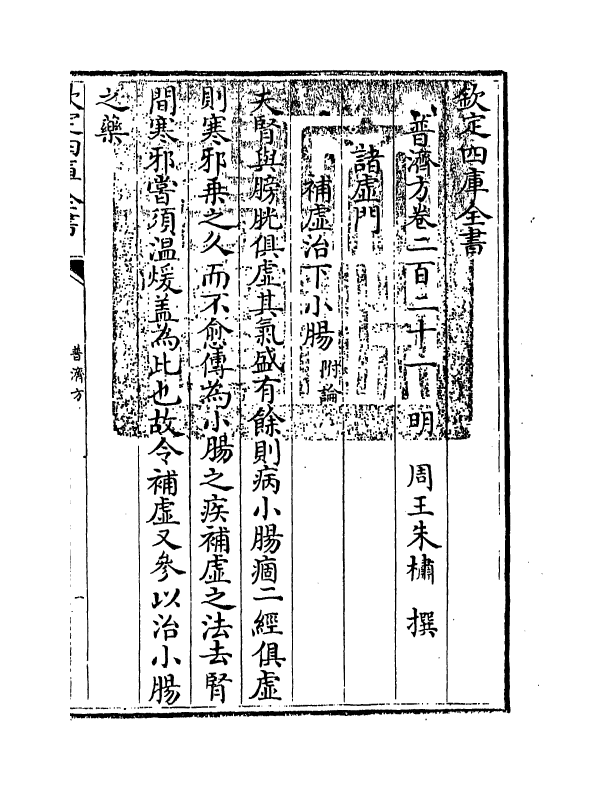 欽定四庫全書
普濟方卷二百二十一　明　周王朱橚　撰
諸虛門
補虛治下小腸附論
夫腎與膀胱俱虛其氣盛有餘則病小腸痼二經俱虛
則寒邪乗之久而不愈傳為小腸之疾補虛之法去腎
間寒邪當須温煖盖為此也故令補虛又參以治小腸
之藥
欽定四庫全書
普濟方
一